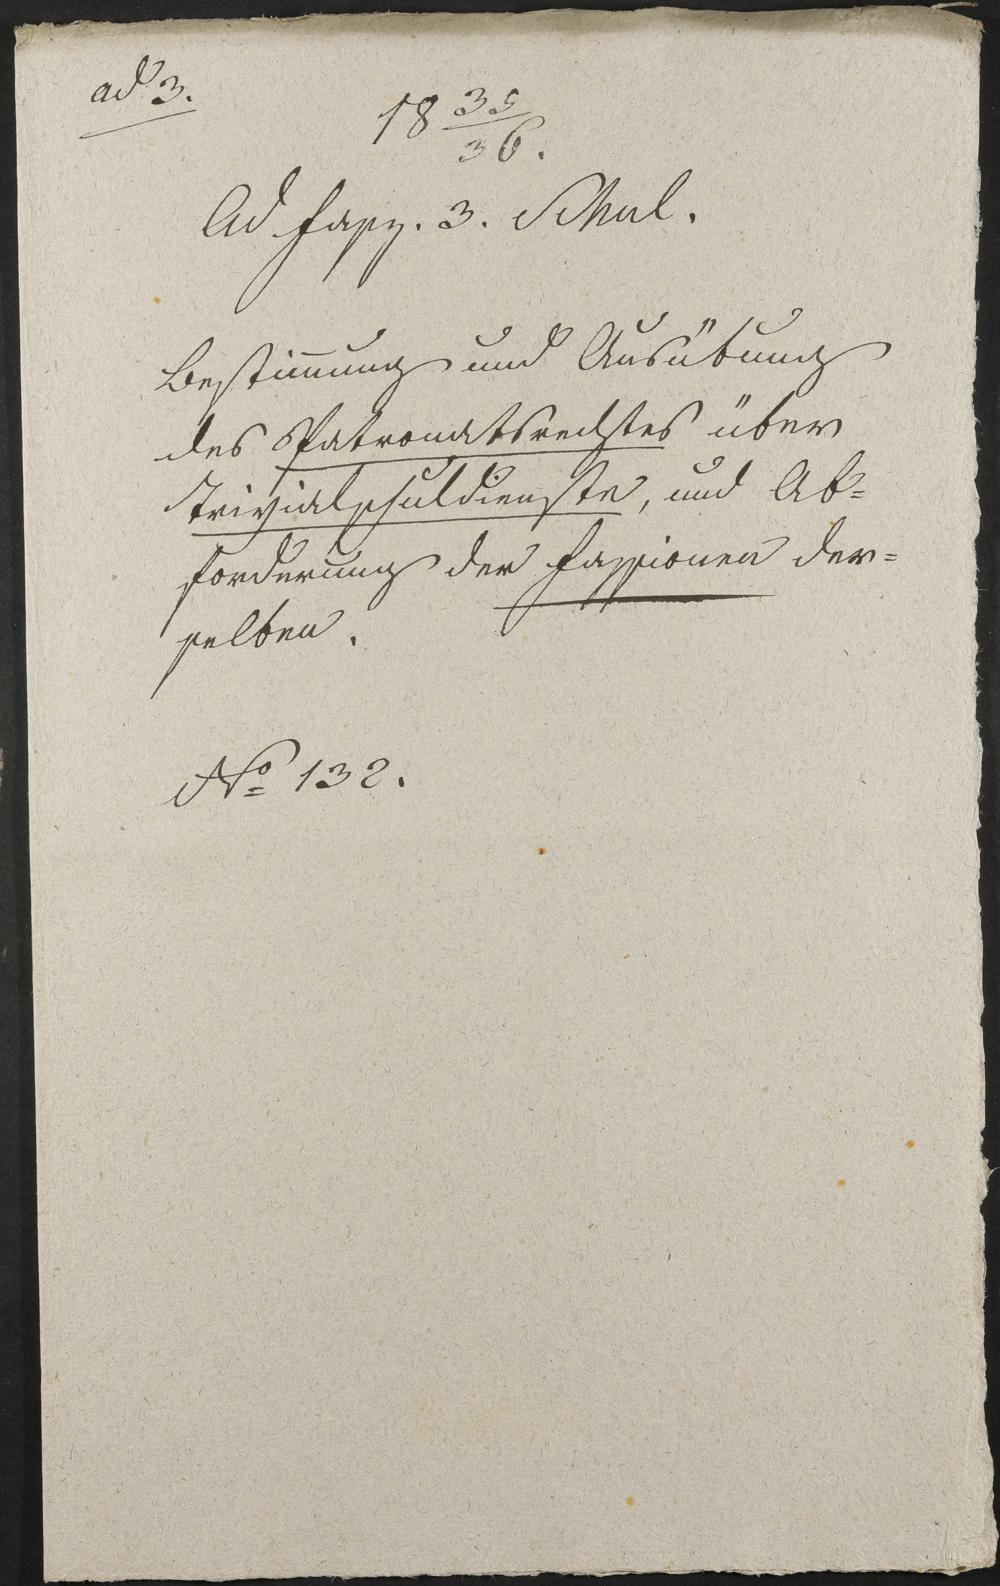 ad 3.
18 35/36.
Ad Fasz. 3. Schul.
Bestimung und Ausübung
des Patronatsrechtes über
Trivialschuldienste, und Ab=
forderung der Fassionen der=
selben.
No 132.